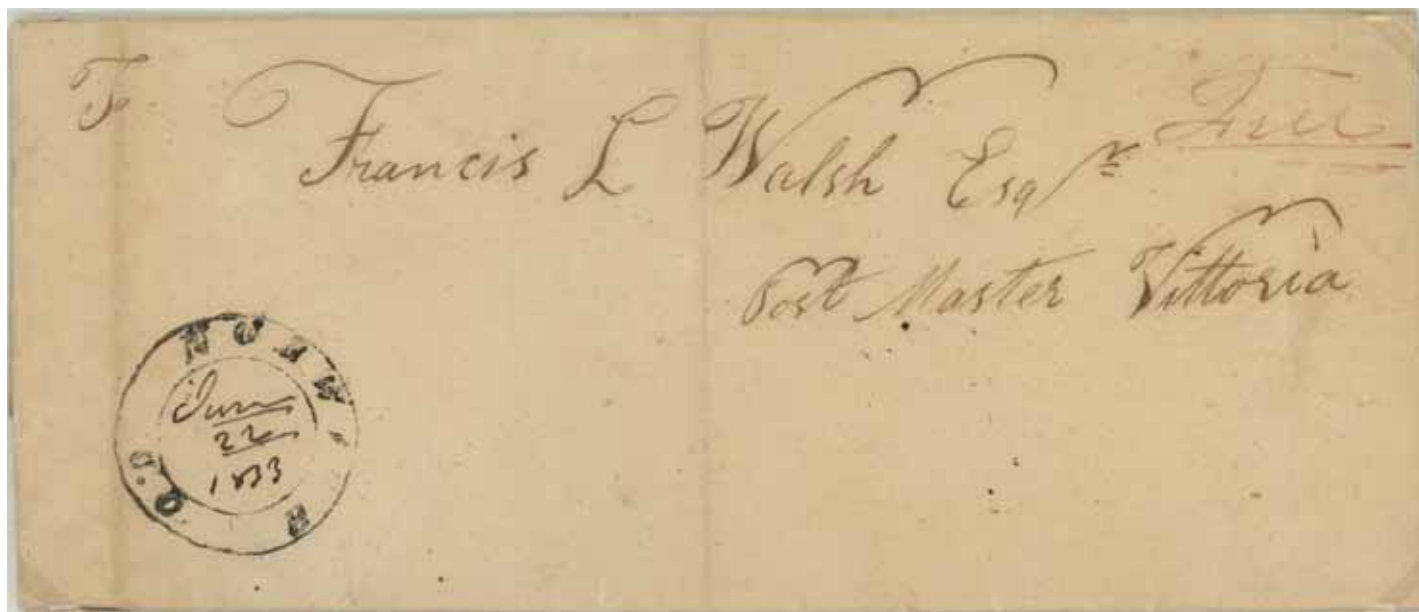 To
Francis L Walsh Esqr Free
Post Master Vittoria
June
22
1833